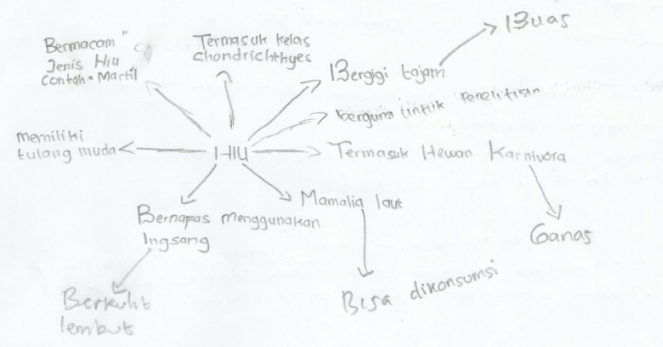 Bermacam"
Jenis Hiu
Contoh • Martil
Termasuk kelas
Chondrichthyes
Bergigi tajam
Buas
berguna untuk Penelitian
memiliki
tulang muda
HIU
Termasuk Hewan Karnivora
Ganas
Bernapas menggunakan
Ingsang
Mamalia laut
Berkulit
lembut
Bisa dikonsumsi